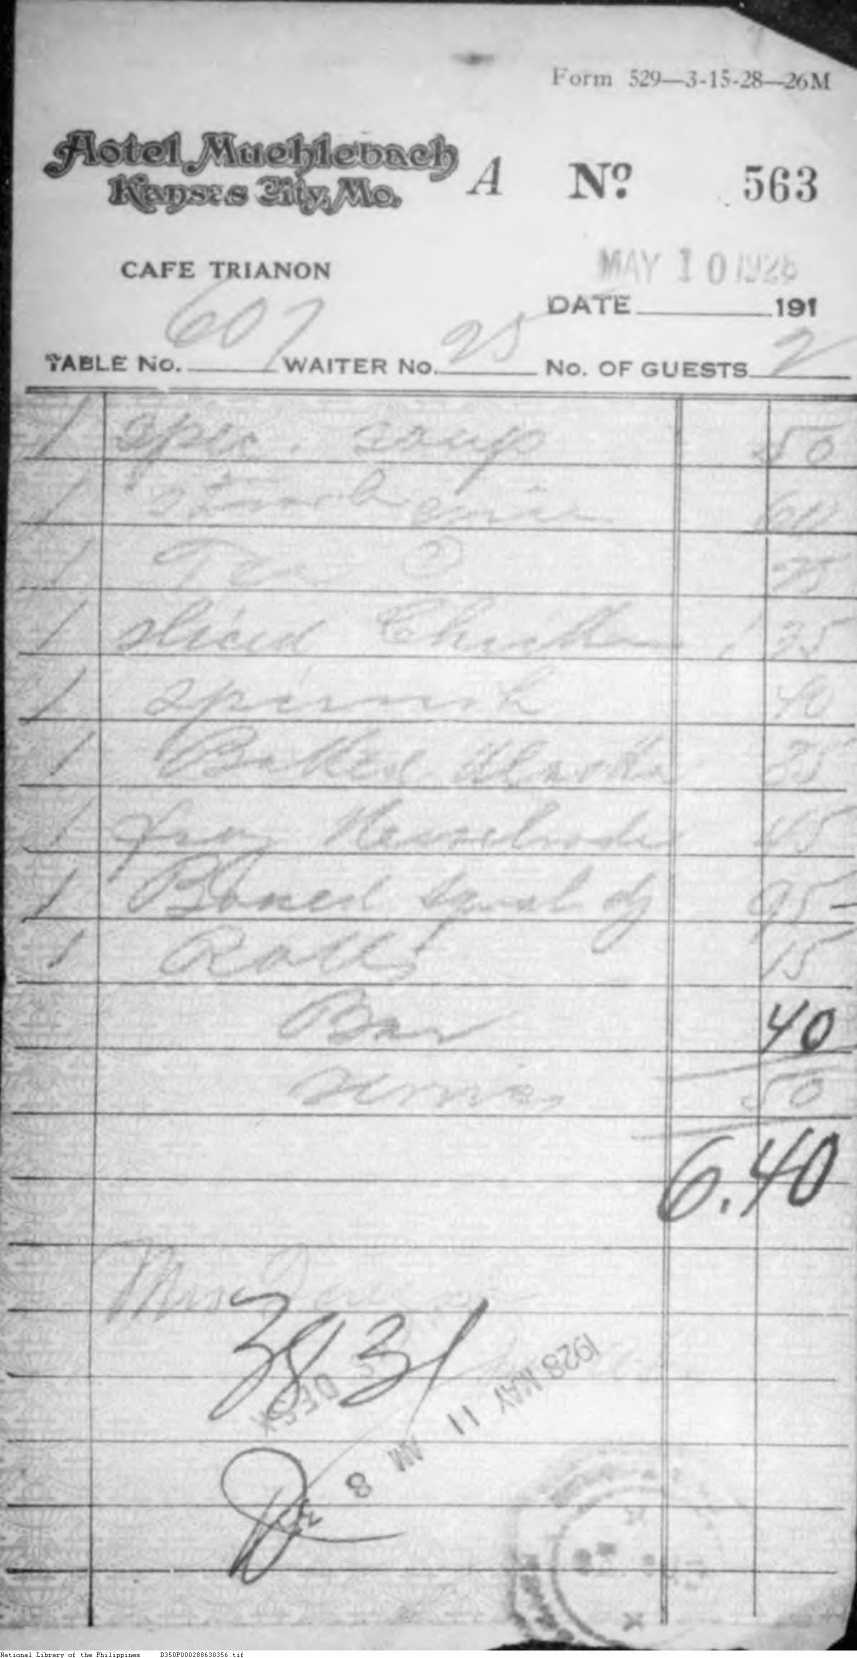 Form 529—3-15-28—26M
Hotel Muehlebach
Kansas City, Mo.
A No. 563
CAFE TRIANON
MAY 10 1928
DATE 191
TABLE No. 607 WAITER No. 25 No. OF GUESTS 2
1 spec. soup 50
1 60
1 Tea 25
1 sliced Chicken 1 35
1 spinach 40
1 Baked Alaska 85
1 Nesselrode 45
1 Boned squab 95
1 Rolls 15
Bar 40
Service 50
6.40
Mrs
3831
DESK
1928 MAY 11 AM 8
National Library of the Philippines D350P000288630356.tif